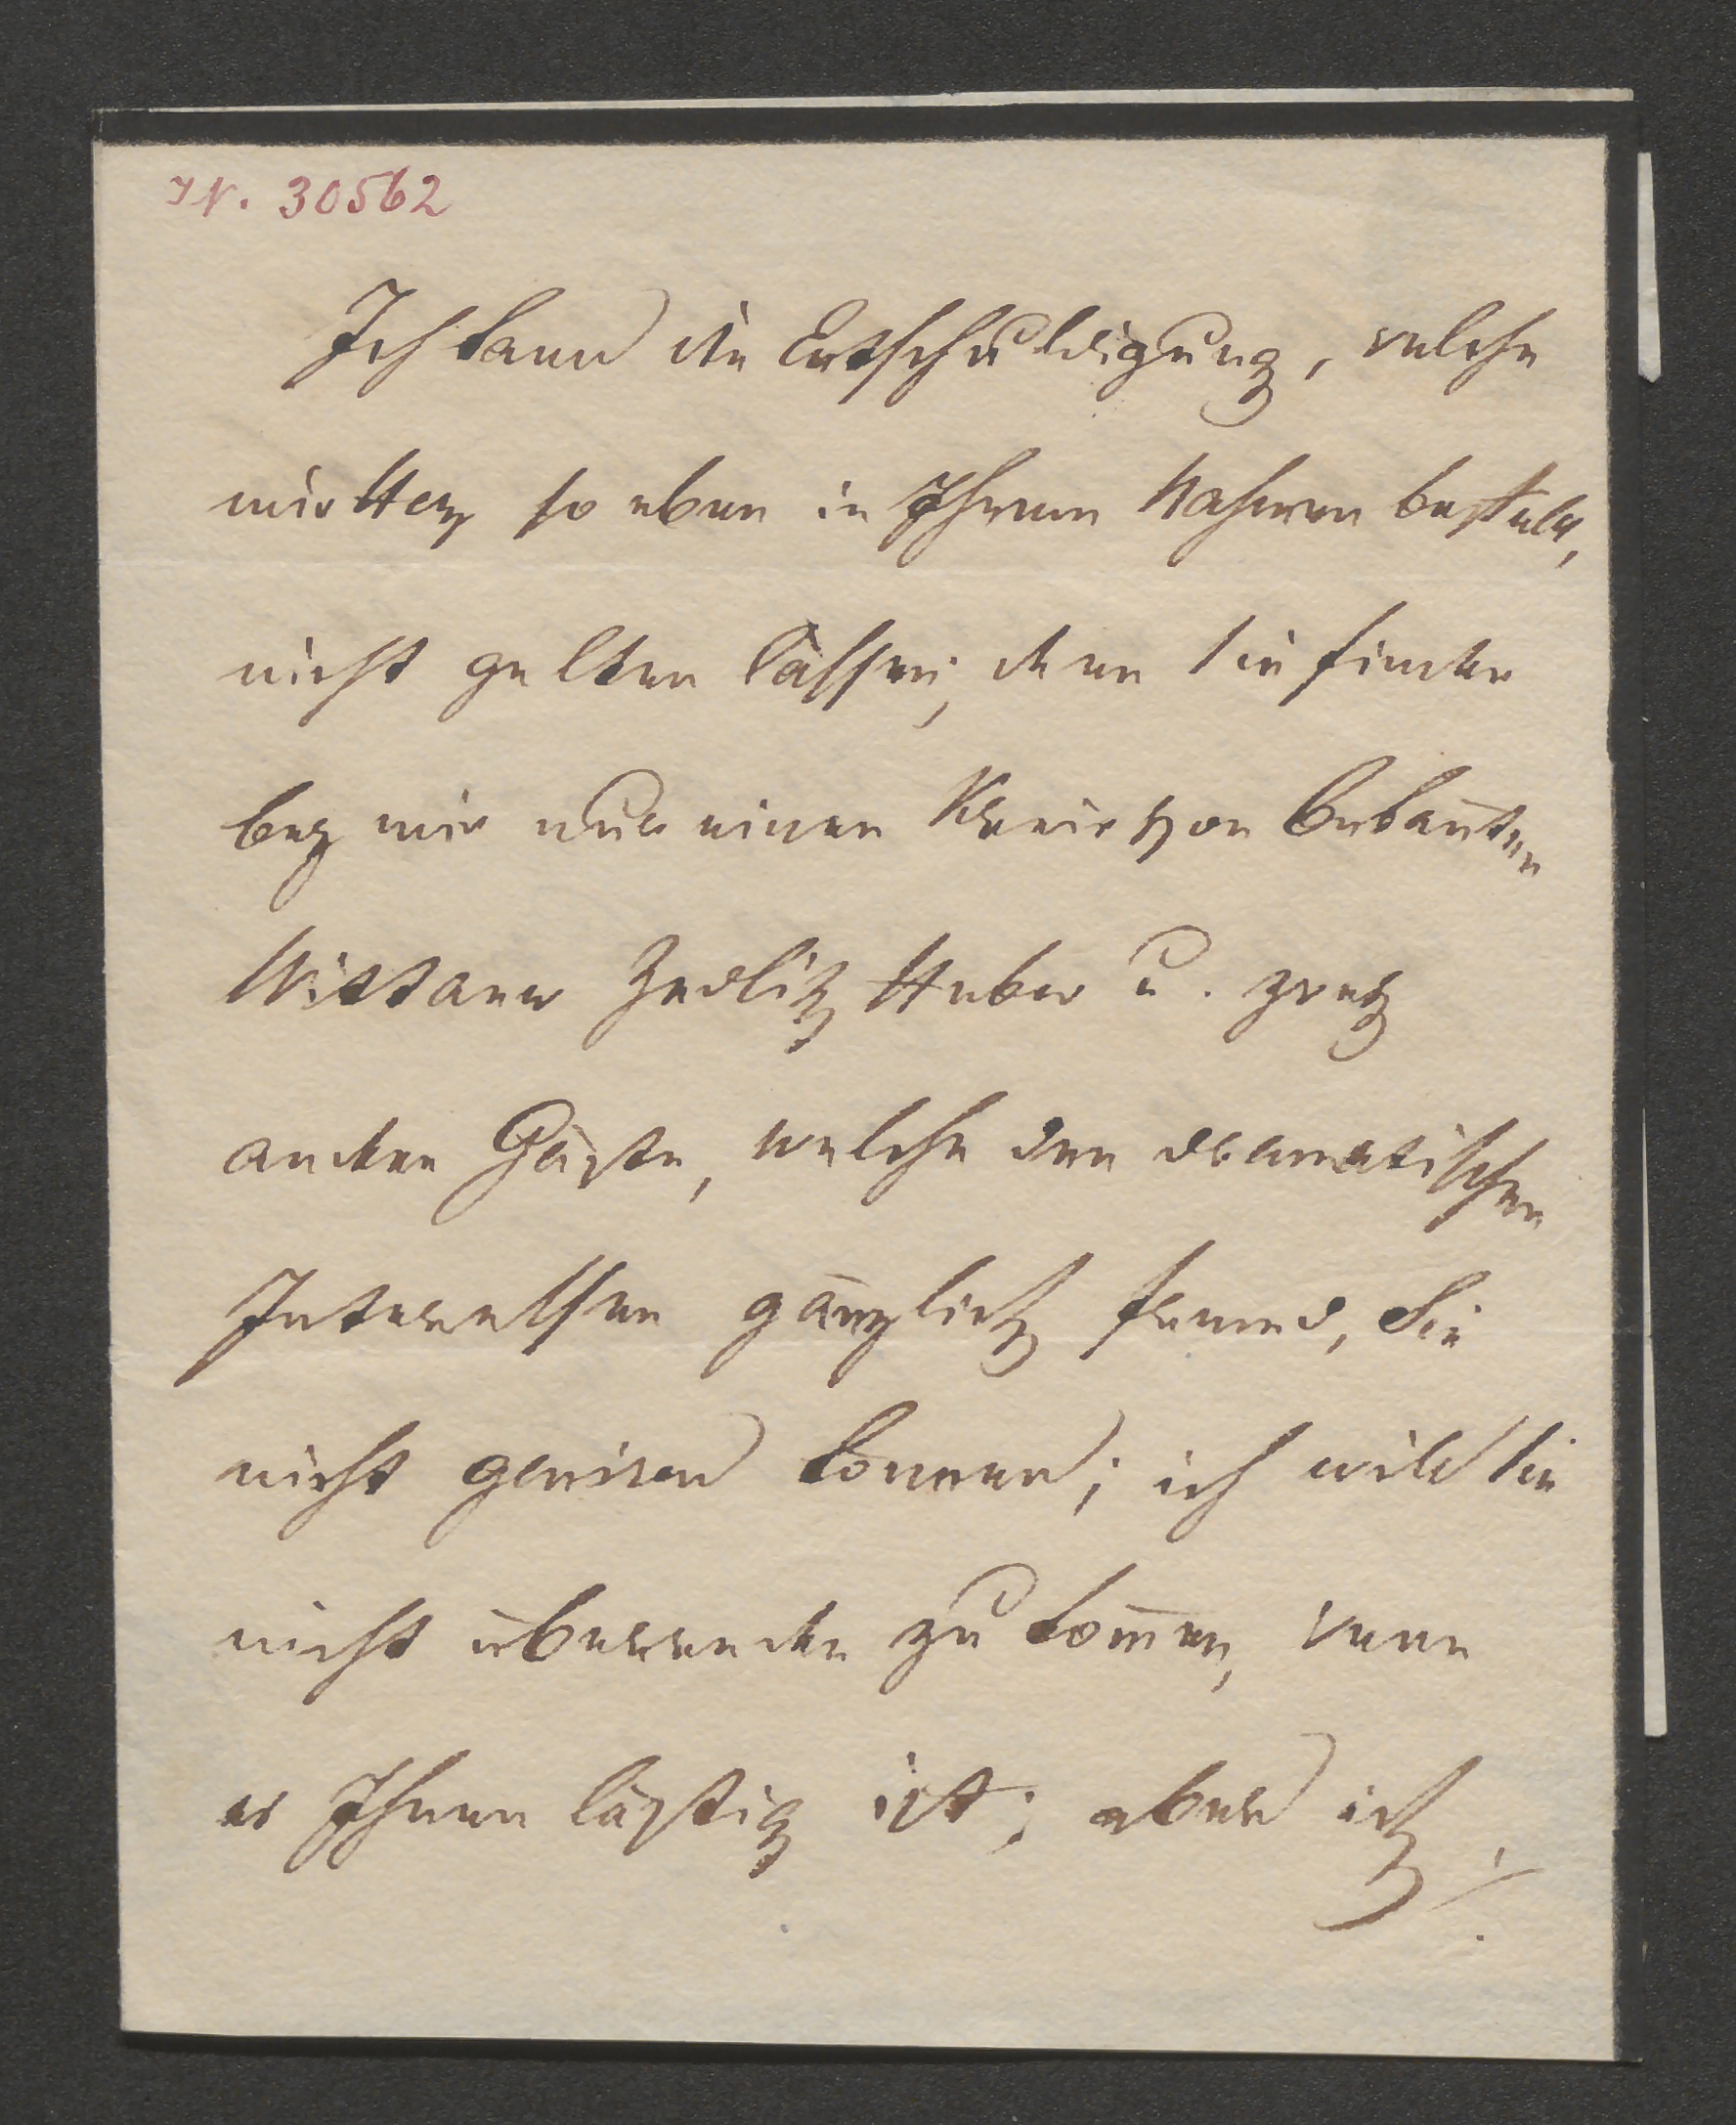 IN. 30562
Ich kann die Entschuldigung, welche
mir Herz so eben in Ihrem Nahmen bestellt,
nicht gelten lassen, denn Sie finden
bey mir nur einen Kreis von Bekañten
Witthauer Zedlitz Huber u. zwey
andere Gäste, welche den dramatischen
Interessen gänzlich fremd, Sie
nicht geniren können; ich will Sie
nicht überreden zu kom̄en, wenn
es Ihnen lästig ist; aber ich ./.